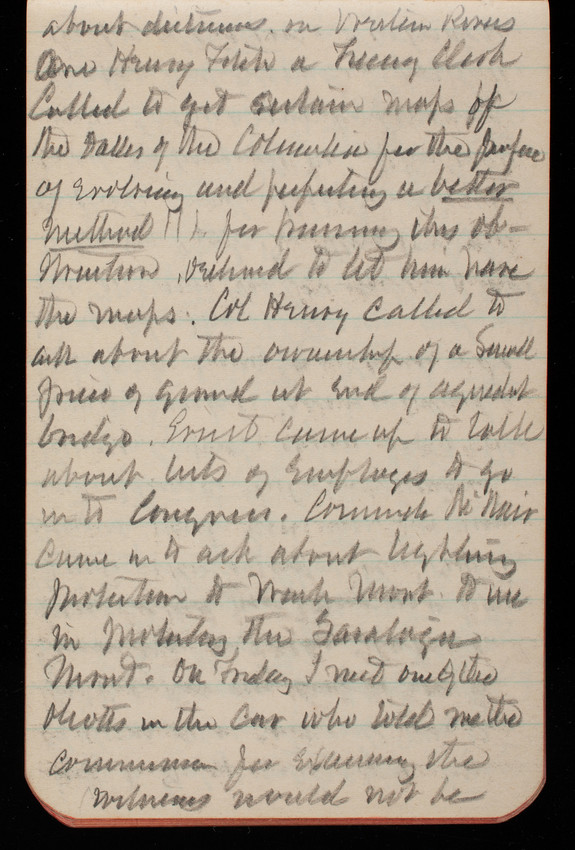 about      on Western Rivers
One Henry Fitch a    Clerk
Called to get certain maps of
the Dalles of the Columbia for the purpose
of evolving and perfecting a better
method    for passing this ob-
struction, declined to let him have
the maps. Col Henry called to
ask about the ownership of a small
piece of ground at End of aqueduct
bridge. Ernst came up to talk
about lists of Employes to go
in to Congress.    McNair
came in to ask about lightning
protection to Wash Mont. to use
in protecting the Saratoga
Mont. On Friday I met one of the
    in the car who told me the
commission for Examining the
witnesses would not be